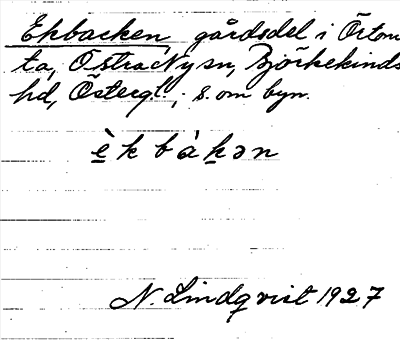 Ekbacken gårdsdel i Örtom
ta, Östra Ny sn, Björkekinds
hd, Östergl.; s. om byn.
è k b à k ə n
N. Lindqvist 1927